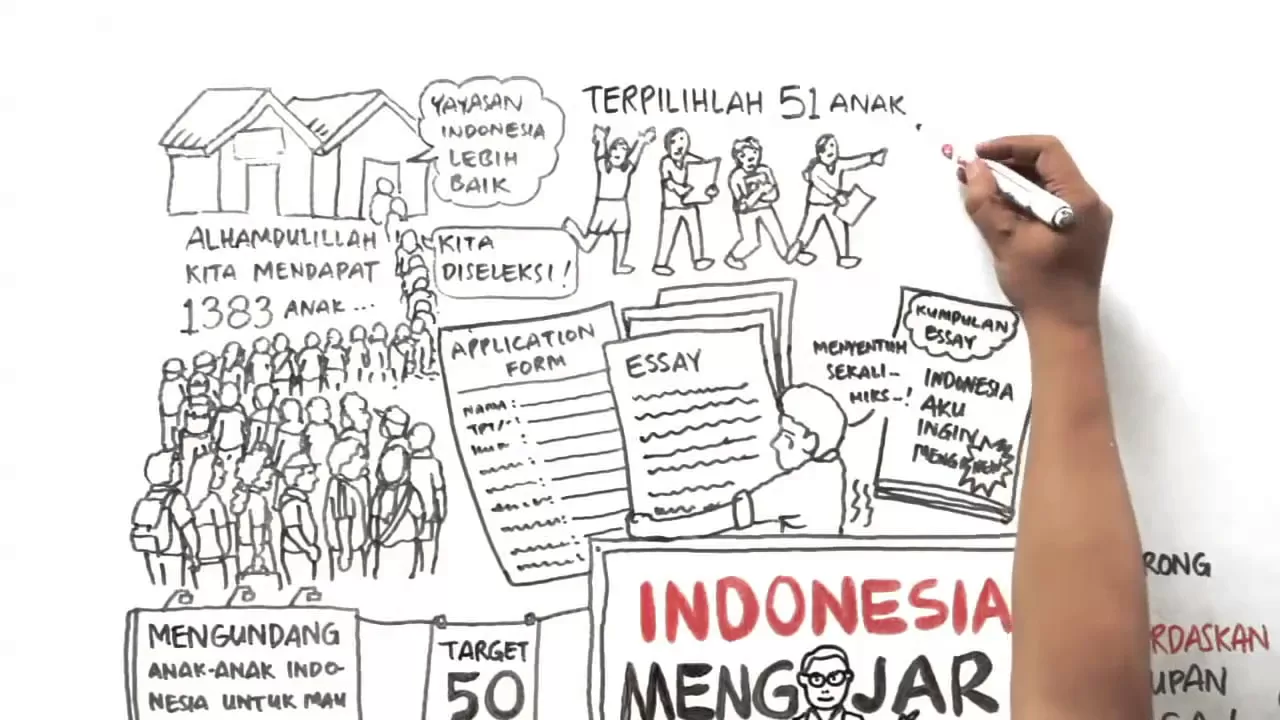 YAYASAN
INDONESIA
LEBIH
BAIK
TERPILIHLAH 51 ANAK
ALHAMDULILLAH
KITA MENDAPAT
1383 ANAK...
KITA
DISELEKSI!
APPLICATION
FORM
NAMA:
ESSAY
MENYENTUH
SEKALI_
HIKS_!
KUMPULAN
ESSAY
INDONESIA
AKU
INGIN
MENGUNDANG
ANAK-ANAK INDO-
NESIA UNTUK MAU
TARGET
50
INDONESIA
MENG JAR
RONG
RDASKAN
UPAN